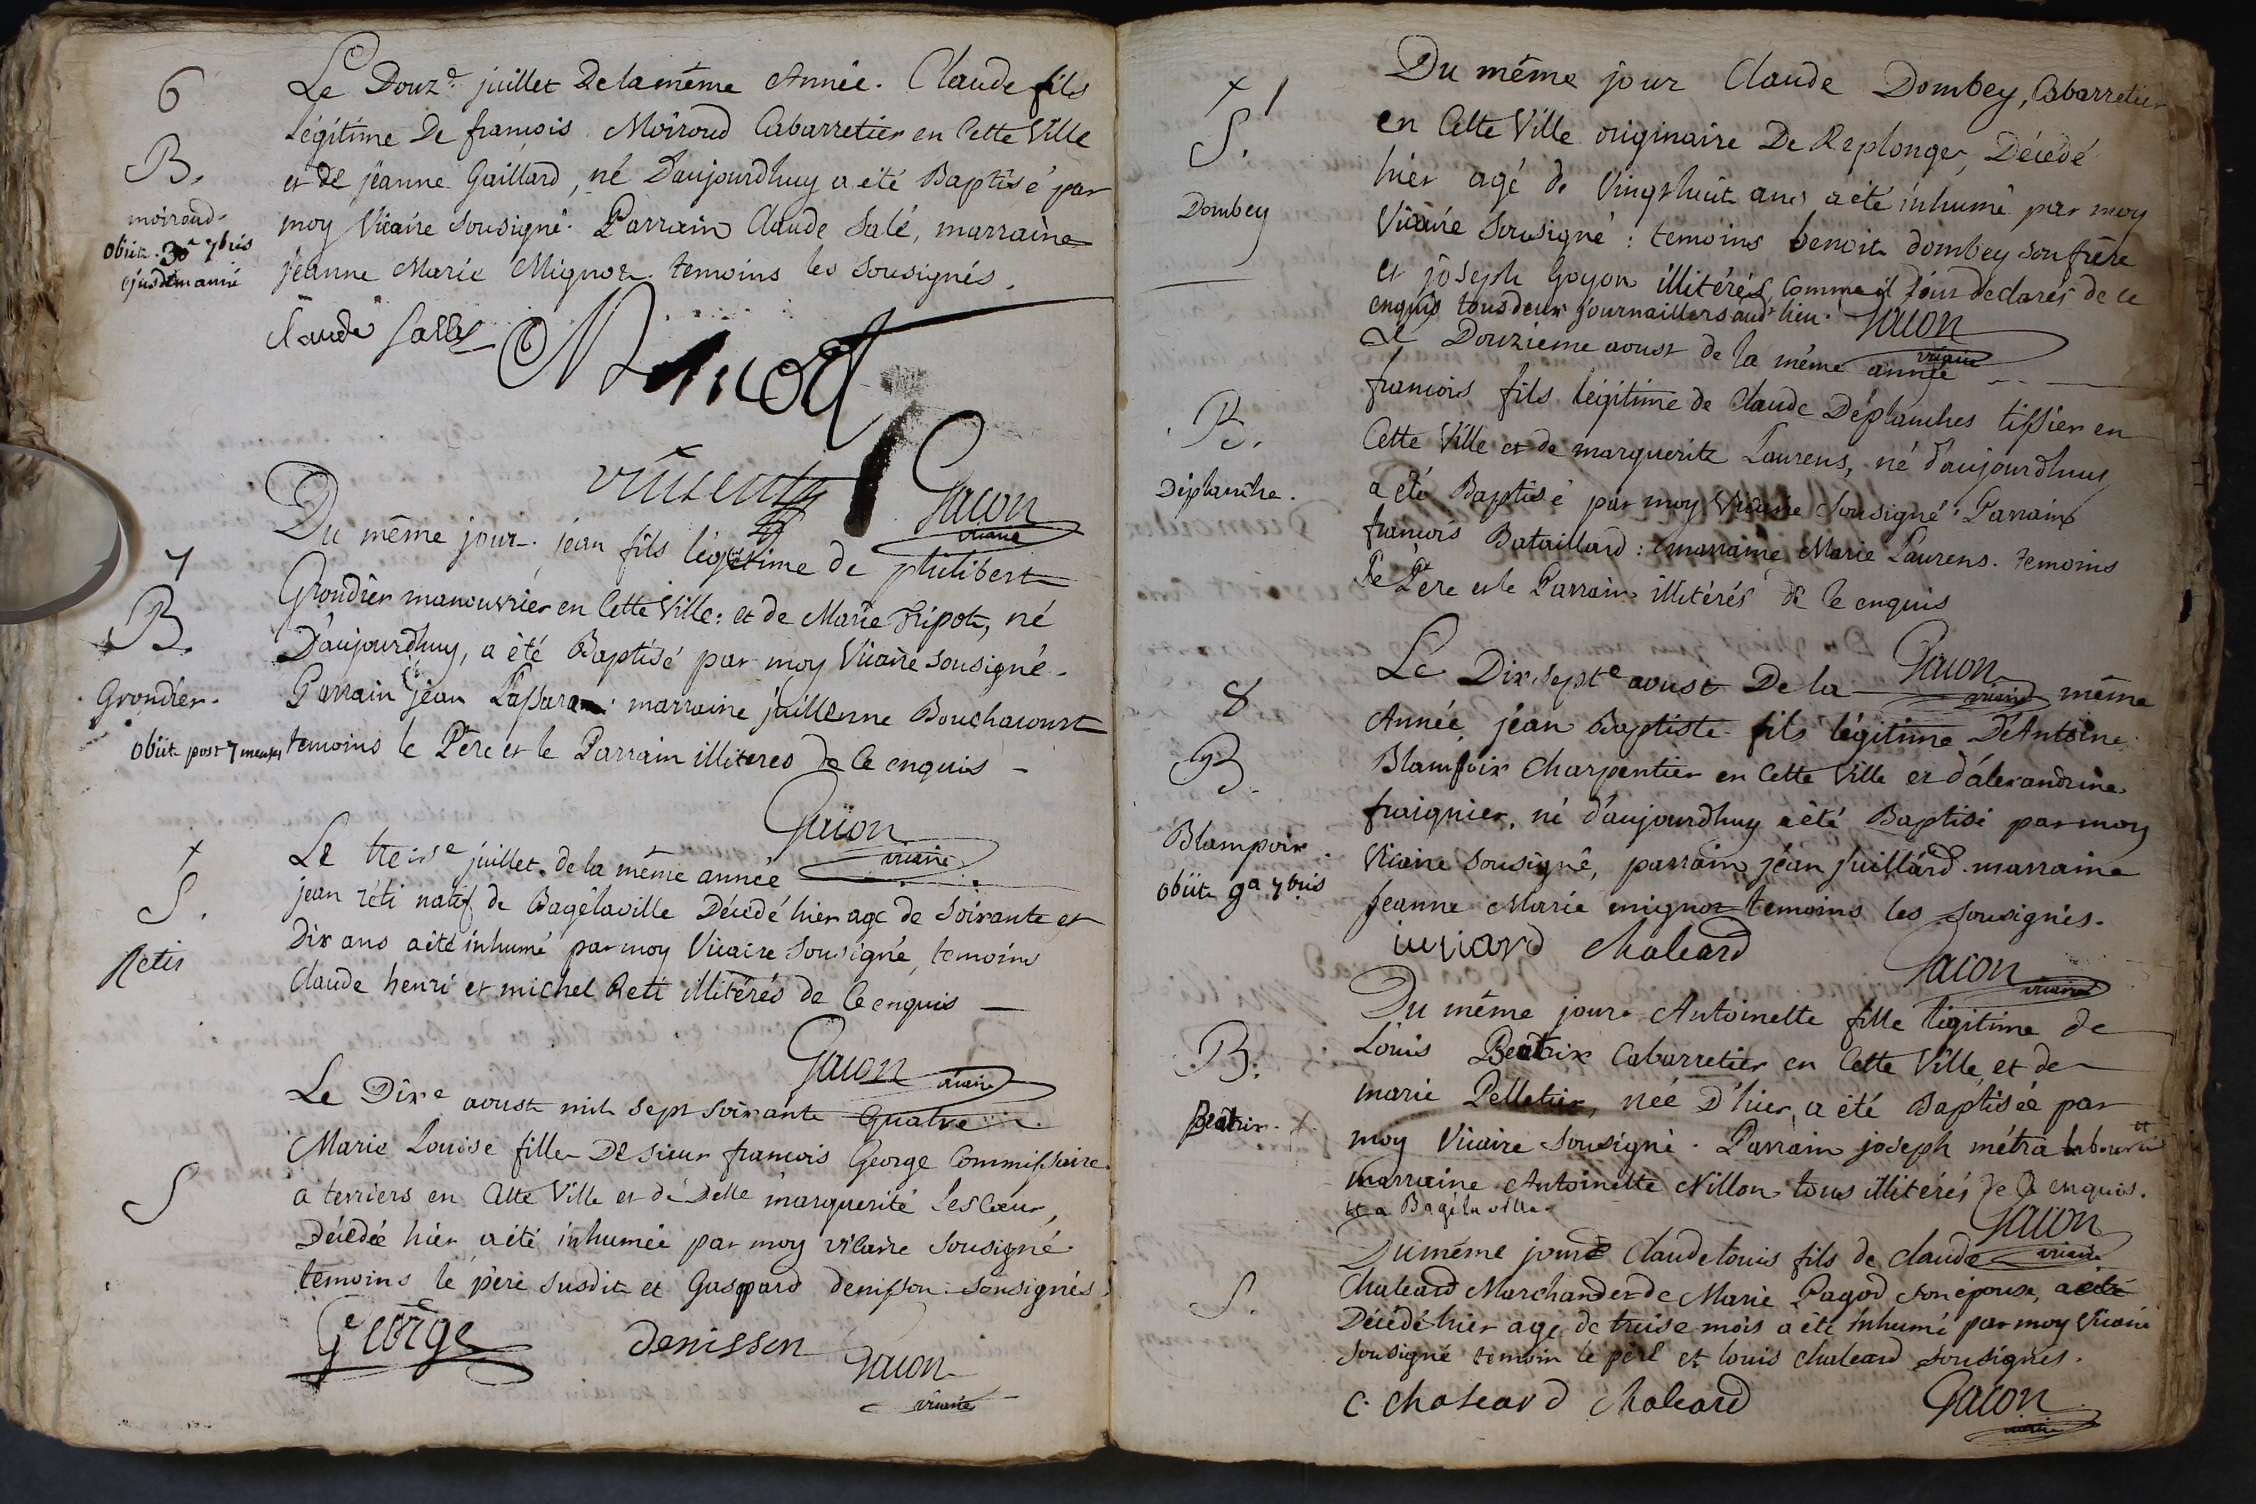 6
Le Douz.e juillet De la même Année. Claude fils
légitime De francois Moiroud Cabarretier en Cette Ville
et de jeanne Gaillard, né D'aujourdhuy a été Baptisé par
moy Vicaire Sousigné. Parrain Claude Salé, marraine
jeanne Marie Mignot. temoins les Sousignés.
B.
moiroud.
obiit. 30a 7bris
ejusdem anni
Claude Salle
vincent
Gacon
vicaire
Du même jour. jean fils légitime de philibert
Grondier manouvrier en Cette Ville: et de Marie Tripot, né
D'aujourdhuy, a été Baptisé par moy Vicaire Sousigné.
Parrain jean marraine juillenne Bouchacourt
temoins le Père et le Parrain illiteres de Ce enquis
7
B.
Grondier.
obiit post 7 menses
Gacon
vicaire
Le treise juillet de la même année
jean réti natif de Bagélaville Décedé hier age de Soixante et
Dix ans a été inhumé par moy Vicaire Sousigné, temoins
Claude henri et michel Reti illitérés de Ce enquis
+
S.
Retis
Gacon
vicaire
Le Dixe aoust mil sept Soixante quatre
Marie Louise fille De sieur francois George Commissaire
a terriers en Cette Ville et de Delle marguerite Lescoeur,
Décedée hier a été inhumée par moy vicaire Sousigné
temoins le père susdit et Gaspard denisson Sousignés.
S
George
denisson
Gacon
vicaire
Du même jour Claude Dombey, Cabarretier
en Cette Ville originaire De Replonges, Décedé
hier agé de Vingt huit ans a été inhumé par moy
Vicaire Sousigné: temoins benoit dombey son frère
et joseph Goyon illitérés, comme il l'ont declarés de ce
enquis tous deux journailliers aud. lieu.
+
S.
Dombey
Gacon
vicaire
Le Douzieme aoust de la même année
francois fils légitime de Claude Déplanches tissier en
Cette Ville et de marguerite Laurens, né d'aujourdhuy
a été Baptisé par moy Vicaire Sousigné: Parrain
francois Bataillard: marraine Marie Laurens. temoins
le Père et le Parrain illitérés de ce enquis
B.
Déplanche.
Gacon
vicaire
Le Dix septe aoust De la même
Année, jean Baptiste fils légitime D'Antoine
Blampoix Charpentier en Cette Ville et d'alexandrine
fraignier, né d'aujourdhuy a été Baptisé par moy
Vicaire Sousigné, parrain jean juillard marraine
Jeanne Marie mignot temoins les Sousignés.
8
B.
Blampoix.
obiit 9a 7bris
juliard Chaleard
Gacon
vicaire
Du même jour Antoinette fille légitime de
Louis Beatrix Cabarretier en Cette Ville et de
marie Pelletier, née D'hier, a été Baptisée par
moy Vicaire Sousigné. Parrain joseph métra laboureur
marraine Antoinette Villon tous illitérés de Ce enquis.
et a Bagélaville.
B.
Beatrix. +
Gacon
vicaire
Du même jour Claude Louis fils de Claude
Chaleard Marchand et de Marie Pagod son épouse, a été
Décedé hier agé de treise mois a été inhumé par moy Vicaire
Sousigné temoin le père et louis chaleard Sousignés.
S.
C. Chaleard Chaleard
Gacon
vicaire